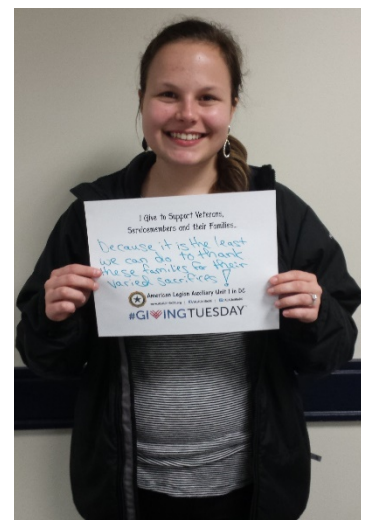 I Give to Support Veterans,
Servicemembers and their Families...
because it is the least
we can do to thank
these families for their
varied sacrifices!
American Legion Auxiliary Unit 1 in DC
#GIVINGTUESDAY